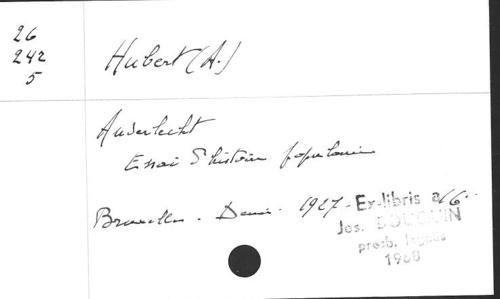 26
242
5
Hubert (A.)
Anderlecht
Essai d'histoire populaire
Bruxelles. Denis. 1927. 16.
Ex-libris
Jos. BOUQUIN
presb.
1968